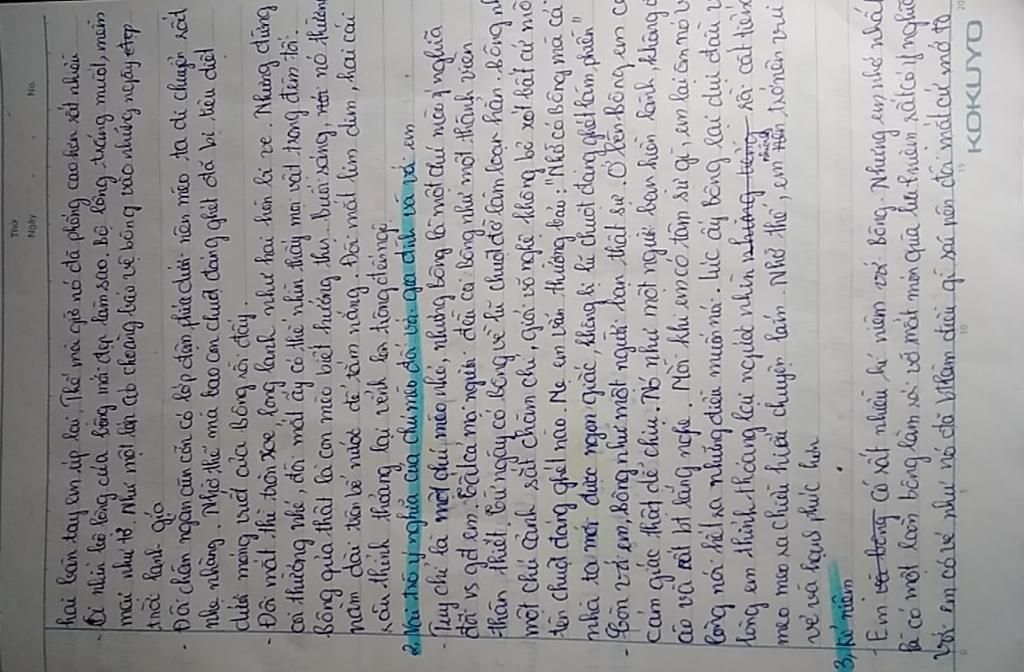 Thứ
Ngày
No.
hai bàn tay em úp lại. Thế mà giờ nó đã phổng cao hơn rất nhiều
- Ôi nhìn bộ lông của bông mới đẹp làm sao. Bộ lông trắng muốt, mềm
mại như tơ. Như một tấm áo choàng bảo vệ bông vào những ngày đẹp
trời lạnh gió
- Đôi chân ngắn cũn cỡn có lớp đệm phía dưới nên mèo ta di chuyển rất
nhẹ nhàng. Nhờ thế mà bao con chuột đáng ghét đã bị tiêu diệt
dưới móng vuốt của bông rồi đấy.
- Đôi mắt thì tròn xoe, long lanh như hai hòn bi ve. Nhưng đừng
coi thường nhé, đôi mắt ấy có thể nhìn thấy mọi vật trong đêm tối.
Bông quả thật là con mèo biết hưởng thụ. Buổi sáng, nó thường
nằm dài trên bể nước để tắm nắng. Đôi mắt lim dim, hai cái
râu thỉnh thoảng lại vểnh lên trông đến ngộ
2. Vai trò ý nghĩa của chú mèo đối với gia đình và với em
- Tuy chỉ là một chú mèo nhỏ, nhưng bông là một chú mèo ý nghĩa
đối vs gđ em. Tất cả mọi người đều coi bông như một thành viên
thân thiết. Từ ngày có bông về lũ chuột đỡ làm loạn hẳn. bông như
một chú cảnh sát chăm chỉ, giỏi võ nghệ không bỏ xót bất cứ một
tên chuột đáng ghét nào. Mẹ em vẫn thường bảo: "Nhờ có bông mà cả
nhà ta mới được ngon giấc, không bị lũ chuột đáng ghét làm phiền"
- Còn với em, bông như một người bạn thật sự. Ở bên bông, em có
cảm giác thật dễ chịu. Nó như một người bạn hiền lành, không ồn
ào và rất biết lắng nghe. Mỗi khi em có tâm sự gì, em lại ôm nó vào
lòng nói hết ra những điều muốn nói. Lúc ấy bông lại dụi đầu vào
lòng em thỉnh thoảng lại ngước nhìn những tiếng rồi cất tiếng
meo meo ra chiều hiểu chuyện lắm. Nhờ thế, em trở nên vui
vẻ và hạnh phúc hơn
3, Kỉ niệm
- Em và bông có rất nhiều kỉ niệm với bông. Nhưng em nhớ nhất
là có một lần bông làm rơi vỡ một món quà lưu niệm rất có ý nghĩa
với em có vẻ như nó đã biết làm điều gì sai nên đôi mắt cứ mở to
KOKUYO